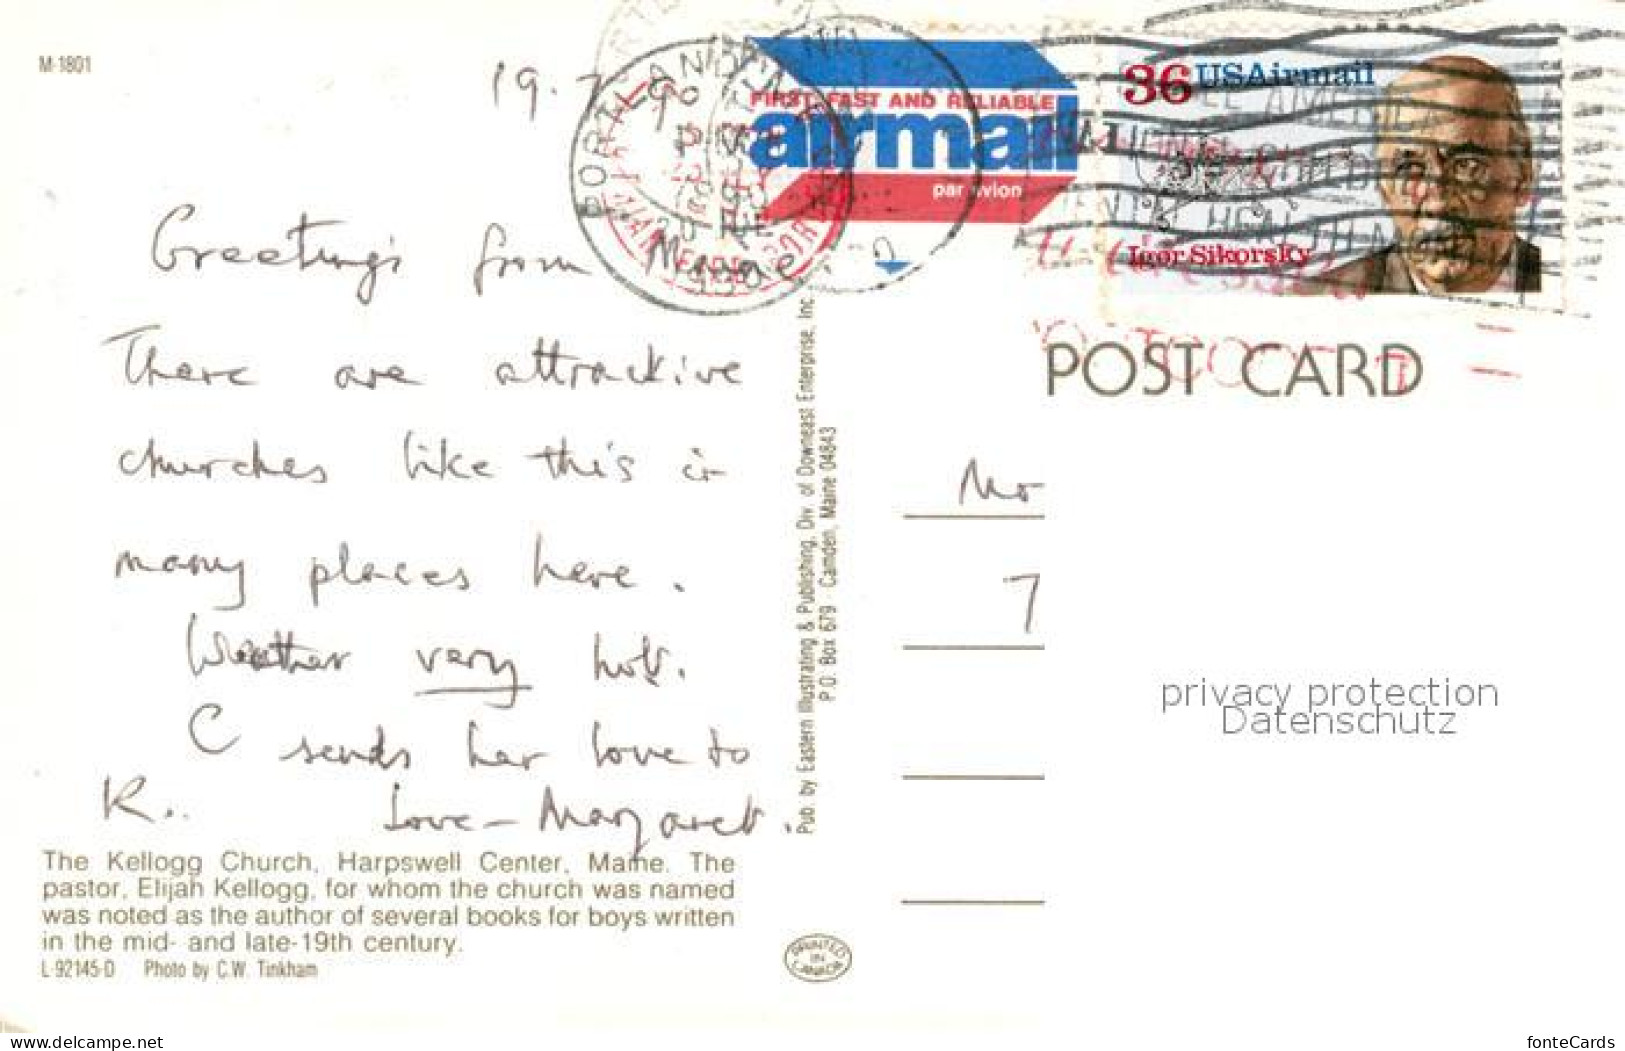 M-1801
19.7.90
PORTLAND
PM
1990
Maine
FIRST, FAST AND RELIABLE
airmail
par avion
36 USAirmail
Igor Sikorsky
POST CARD
Greetings from
There are attractive
churches like this in
many places here.
Weather very hot.
C sends her love to
K..
Love - Margaret.
The Kellogg Church, Harpswell Center, Maine. The
pastor, Elijah Kellogg, for whom the church was named
was noted as the author of several books for boys written
in the mid- and late-19th century.
L-92145-D Photo by C.W. Tinkham
Pub. by Eastern Illustrating & Publishing, Div. of Downeast Enterprise, Inc.
P.O. Box 679 - Camden, Maine 04843
PRINTED
IN
CANADA
7
privacy protection
Datenschutz
picclickimg.com
fonteCards